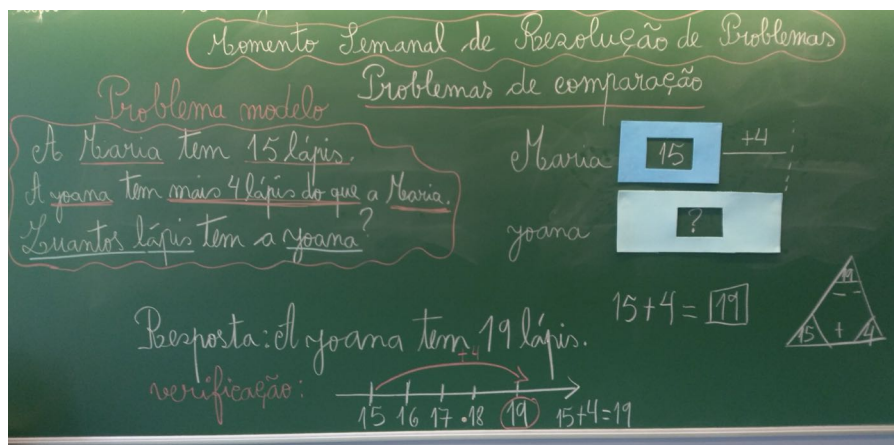 Momento Semanal de Resolução de Problemas
Problemas de comparação
Problema modelo
A Maria tem 15 lápis.
A Joana tem mais 4 lápis do que a Maria.
Quantos lápis tem a Joana?
Maria 15 +4
Joana ?
15+4=19
19
- -
15 + 4
Resposta: A Joana tem 19 lápis.
verificação:
+4
15 16 17 18 19 15+4=19